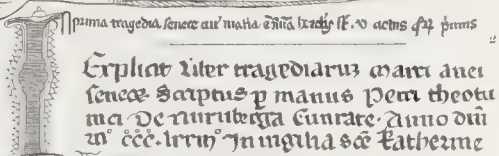 Prima tragedia senece cui' materia
Explicit liber tragediarum marci anei
senece. Scriptus p manus Petri theotu
nici De nurnberga Cunrate. Anno dni
mº cccº. In vigilia sce katherine